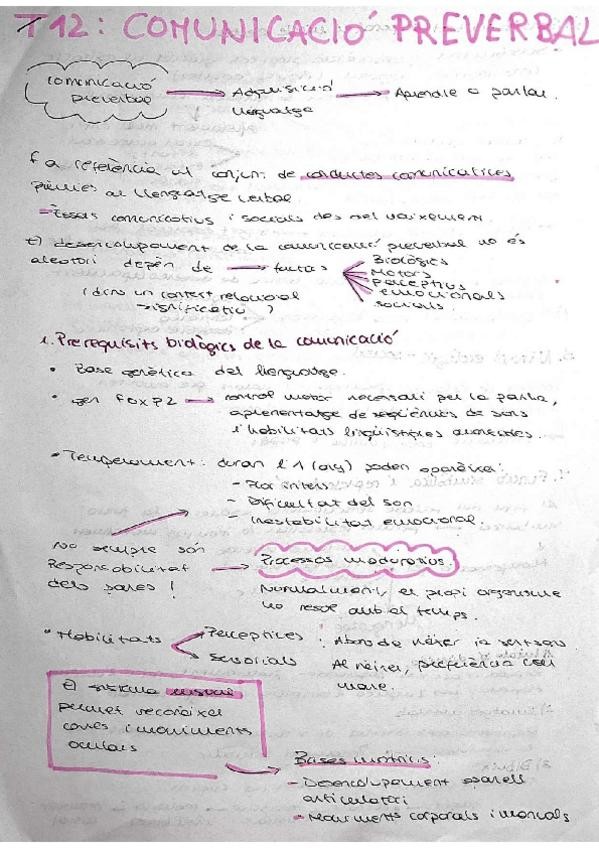 T12: COMUNICACIÓ PREVERBAL
comunicació preverbal → Adquisició llenguatge → Aprendre a parlar.
Fa referència al conjunt de conductes comunicatives
prèvies al llenguatge verbal.
- Éssers comunicatius i socials des del naixement.
El desenvolupament de la comunicació preverbal no és
aleatori depèn de → factors
Biològics
Motors
perceptius
emocionals
socials.
(dins un context relacional
significatiu)
1. Prerequisits biològics de la comunicació
• Base genètica del llenguatge.
• gen FOXP2 → control motor necessari per la parla,
aprenentatge de seqüències de sons
i habilitats lingüístiques avançades.
• Temperament: durant l'1 (any) poden aparèixer:
- Plor intens
- Dificultat del son
- Inestabilitat emocional.
No sempre són
Responsabilitat
dels pares!
→ Processos maduratius.
Normalment, el propi organisme
ho resol amb el temps.
• Habilitats
Perceptives
Sensorials
: Abans de néixer ja
Al néixer, preferència
mare.
El sistema visual
permet reconèixer
cares i moviments
oculars
Bases motrius:
- Desenvolupament aparell
articulatori
- Moviments corporals i manuals